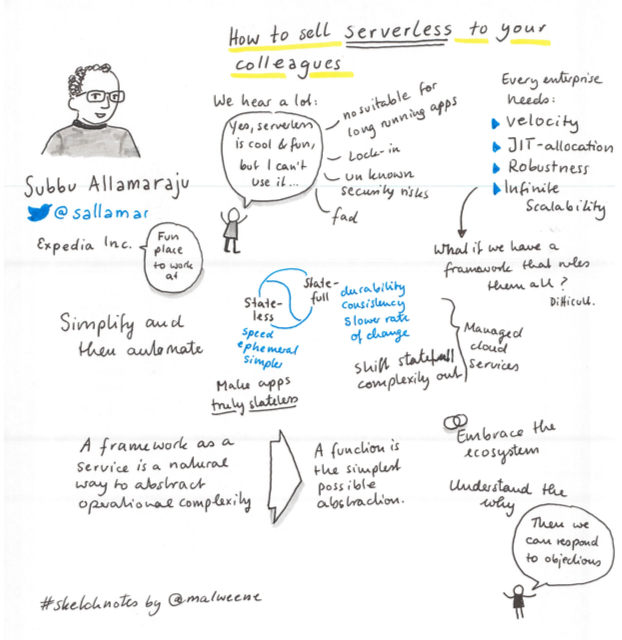 How to sell serverless to your
colleagues
Subbu Allamaraju
@sallamar
Expedia Inc.
Fun
place
to work
at
We hear a lot:
Yes, serverless
is cool & fun,
but I can't
use it...
no suitable for
long running apps
Lock-in
unknown
security risks
fad
Every enterprise
needs:
Velocity
JIT-allocation
Robustness
Infinite
Scalability
What if we have a
framework that rules
them all?
Difficult.
Simplify and
then automate
State-
less
speed
ephemeral
simpler
State-
full
durability
consistency
slower rate
of change
Make apps
truly stateless
Shift statefull
complexity out
Managed
cloud
services
A framework as a
service is a natural
way to abstract
operational complexity
A function is
the simplest
possible
abstraction.
Embrace the
ecosystem
Understand the
why
Then we
can respond
to objections
#sketchnotes by @malweene